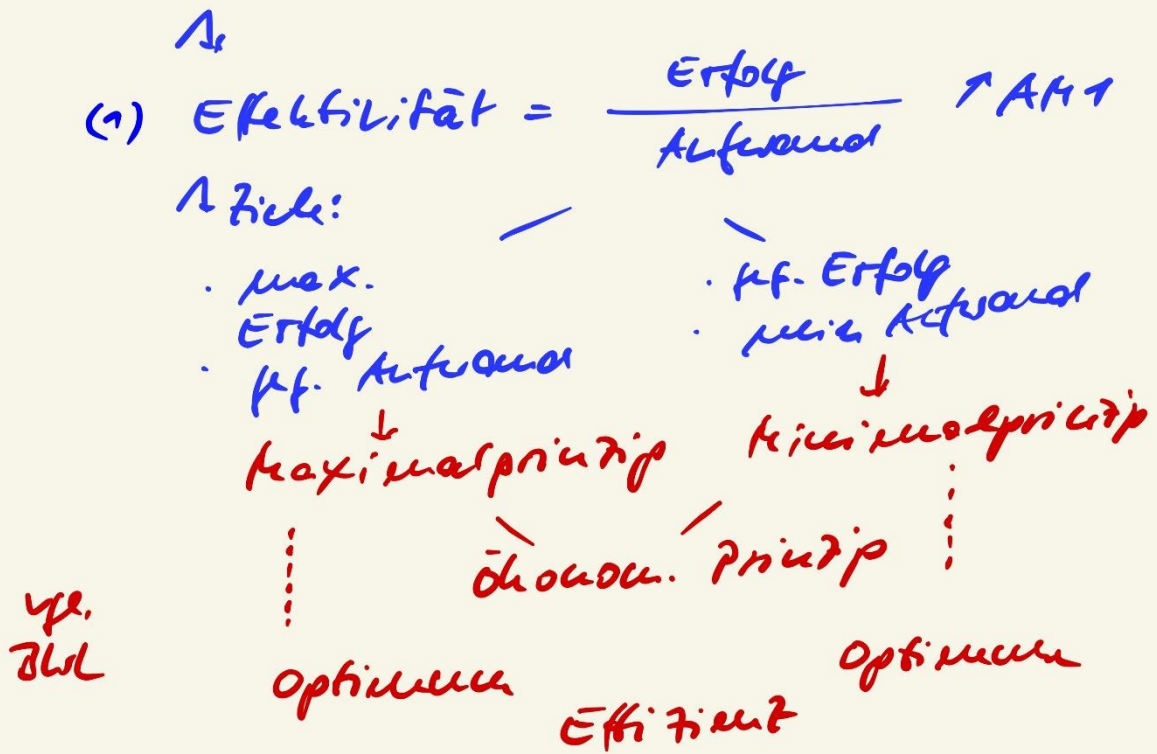 1.
(1) Effektivität = Erfolg / Aufwand ↑ AM1
1 Ziele:
· max. Erfolg
· ggf. Aufwand
· ggf. Erfolg
· min Aufwand
↓ ↓
Maximalprinzip Minimalprinzip
ökonom. Prinzip
vgl.
BWL
Optimum Optimum
Effizienz